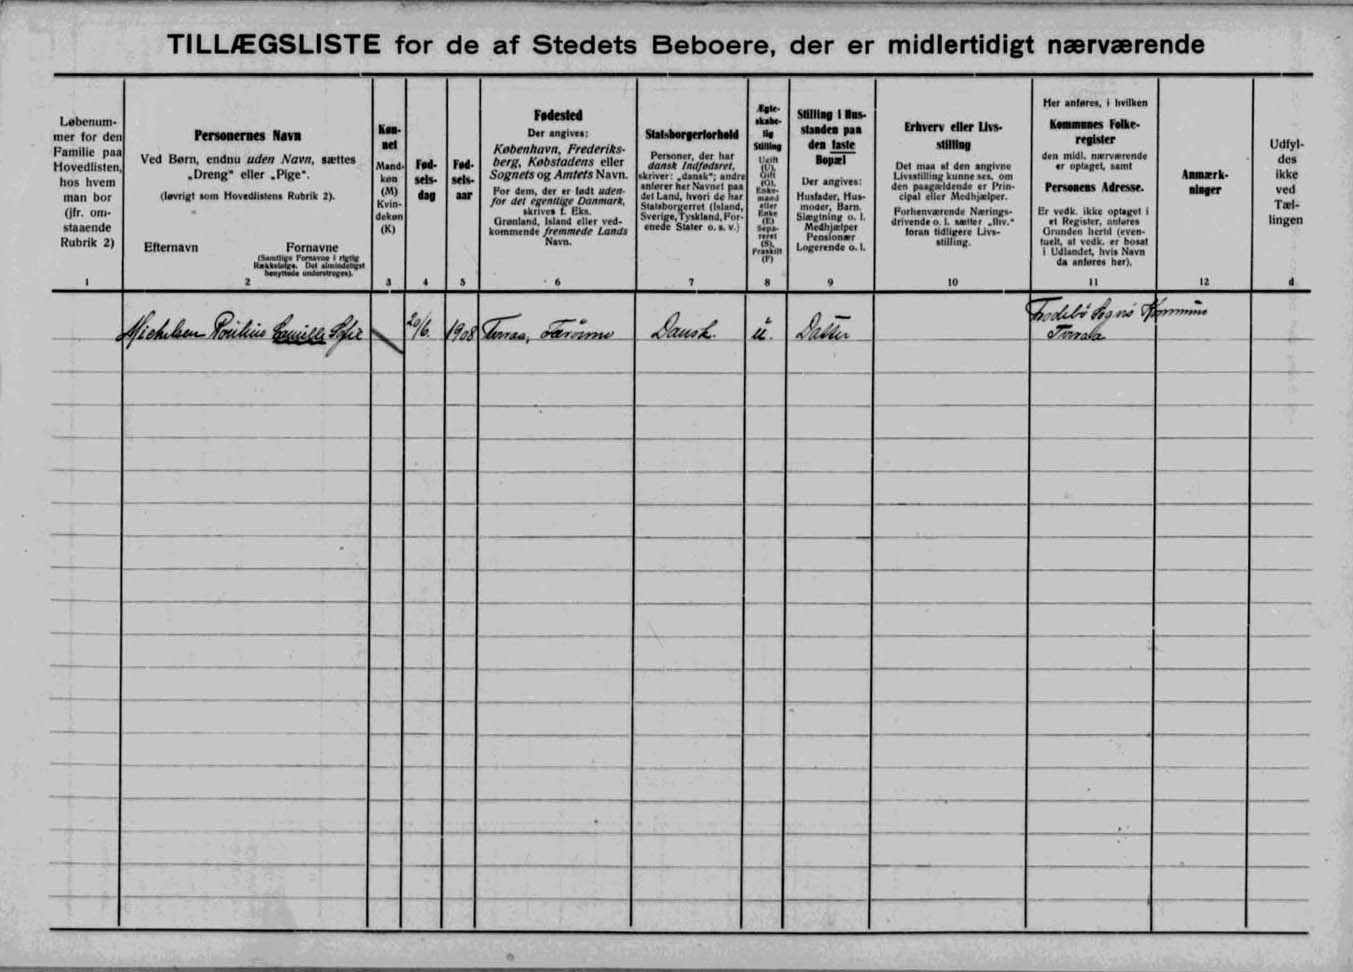 TILLÆGSLISTE for de af Stedets Beboere, der er midlertidigt nærværende
Løbenum-
mer for den
Familie paa
Hovedlisten,
hos hvem
man bor
(jfr. om-
staaende
Rubrik 2)
1
Personernes Navn
Ved Børn, endnu uden Navn, sættes
„Dreng“ eller „Pige“.
(Iøvrigt som Hovedlistens Rubrik 2).
Efternavn Fornavne
(Samtlige Fornavne i rigtig
Rækkefølge. Det almindeligst
benyttede understreges).
2
Køn-
net
Mand-
køn
(M)
Kvin-
dekøn
(K)
3
Fød-
sels-
dag
4
Fød-
sels-
aar
5
Fødested
Der angives:
København, Frederiks-
berg, Købstadens eller
Sognets og Amtets Navn.
For dem, der er født uden-
for det egentlige Danmark,
skrives f. Eks.
Grønland, Island eller ved-
kommende fremmede Lands
Navn.
6
Statsborgerforhold
Personer, der har
dansk Indfødsret,
skriver: „dansk“; andre
anfører her Navnet paa
det Land, hvori de har
Statsborgerret (Island,
Sverige, Tyskland, For-
enede Stater o. s. v.)
7
Ægte-
skabe-
lig
Stilling
Ugift
(U),
Gift
(G),
Enke-
mand
eller
Enke
(E)
Sepa-
reret
(S),
Fraskilt
(F)
8
Stilling i Hus-
standen paa
den faste
Bopæl
Der angives:
Husfader, Hus-
moder, Barn,
Slægtning o. l.
Medhjælper
Pensionær
Logerende o. l.
9
Erhverv eller Livs-
stilling
Det maa af den angivne
Livsstilling kunne ses, om
den paagældende er Prin-
cipal eller Medhjælper.
Forhenværende Nærings-
drivende o. l. sætter „fhv.“
foran tidligere Livs-
stilling.
10
Her anføres, i hvilken
Kommunes Folke-
register
den midl. nærværende
er optaget, samt
Personens Adresse.
Er vedk. ikke optaget i
et Register, anføres
Grunden hertil (even-
tuelt, at vedk. er bosat
i Udlandet, hvis Navn
da anføres her).
11
Anmærk-
ninger
12
Udfyl-
des
ikke
ved
Tæl-
lingen
d
Michelsen Camilla Sofie 20/6. 1908 Færöerne Dansk. u. Datter
Sogns Kommune